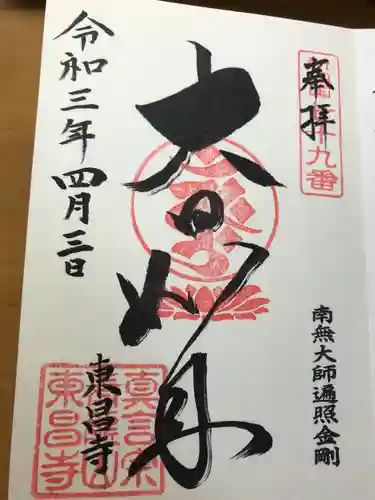 奉拝
九番
南無大師遍照金剛
大日如来
令和三年四月三日
東昌寺
真言宗
東昌寺